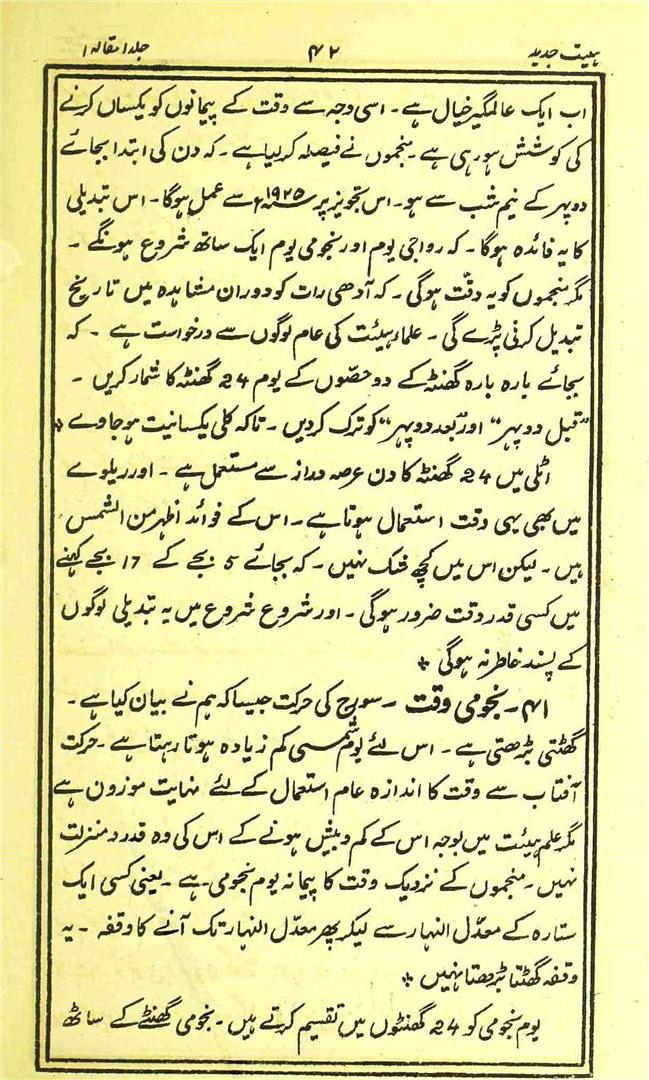 ہیئت جدید ۴۲ جلد ۱ مقالہ ۱
اب ایک عالمگیر خیال ہے۔ اسی وجہ سے وقت کے پیمانوں کو یکساں کرنے
کی کوشش ہو رہی ہے۔ منجموں نے فیصلہ کر لیا ہے۔ کہ دن کی ابتدا بجائے
دوپہر کے نیم شب سے ہو۔ اس تجویز پر ۱۹۲۵ء سے عمل ہوگا۔ اس تبدیلی
کا یہ فائدہ ہوگا۔ کہ رواجی یوم اور نجومی یوم ایک ساتھ شروع ہونگے۔
مگر منجموں کو یہ دقّت ہوگی۔ کہ آدھی رات کو دوران مشاہدہ میں تاریخ
تبدیل کرنی پڑے گی۔ علماء ہیئت کی عام لوگوں سے درخواست ہے۔ کہ
بجائے بارہ بارہ گھنٹہ کے دو حصّوں کے یوم 24 گھنٹہ کا شمار کریں۔
”قبل دوپہر“ اور ”بعد دوپہر“ کو ترک کردیں۔ تاکہ کلی یکسانیت ہوجاوے *
اٹلی میں 24 گھنٹہ کا دن عرصہ دراز سے مستعمل ہے۔ اور ریلوے
میں بھی یہی وقت استعمال ہوتا ہے۔ اس کے فوائد اظہر من الشمس
ہیں۔ لیکن اس میں کچھ شک نہیں۔ کہ بجائے 5 بجے کے 17 بجے کہنے
میں کسی قدر دقت ضرور ہوگی۔ اور شروع شروع میں یہ تبدیلی لوگوں
کے پسند خاطر نہ ہوگی *
۴۱۔ نجومی وقت ۔ سورج کی حرکت جیسا کہ ہم نے بیان کیا ہے۔
گھٹتی بڑھتی ہے۔ اس لئے یوم شمسی کم زیادہ ہوتا رہتا ہے۔ حرکت
آفتاب سے وقت کا اندازہ عام استعمال کے لئے نہایت موزون ہے
مگر علم ہیئت میں بوجہ اس کے کم و بیش ہونے کے اس کی وہ قدر و منزلت
نہیں۔ منجموں کے نزدیک وقت کا پیمانہ یوم نجومی ہے۔ یعنی کسی ایک
ستارہ کے معدّل النہار سے لیکر پھر معدّل النہار تک آنے کا وقفہ۔ یہ
وقفہ گھٹتا بڑھتا نہیں *
یوم نجومی کو 24 گھنٹوں میں تقسیم کرتے ہیں۔ نجومی گھنٹے کے ساٹھ